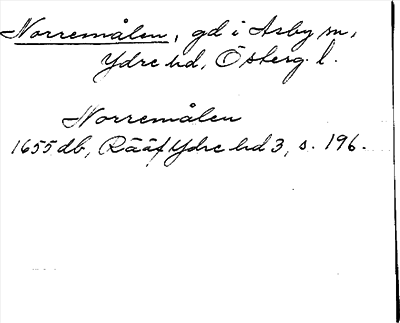 Norremålen, gd i Asby sn,
Ydre hd, Österg. l.
Norremålen
1655 db, Rääf Ydre hd 3, s. 196.